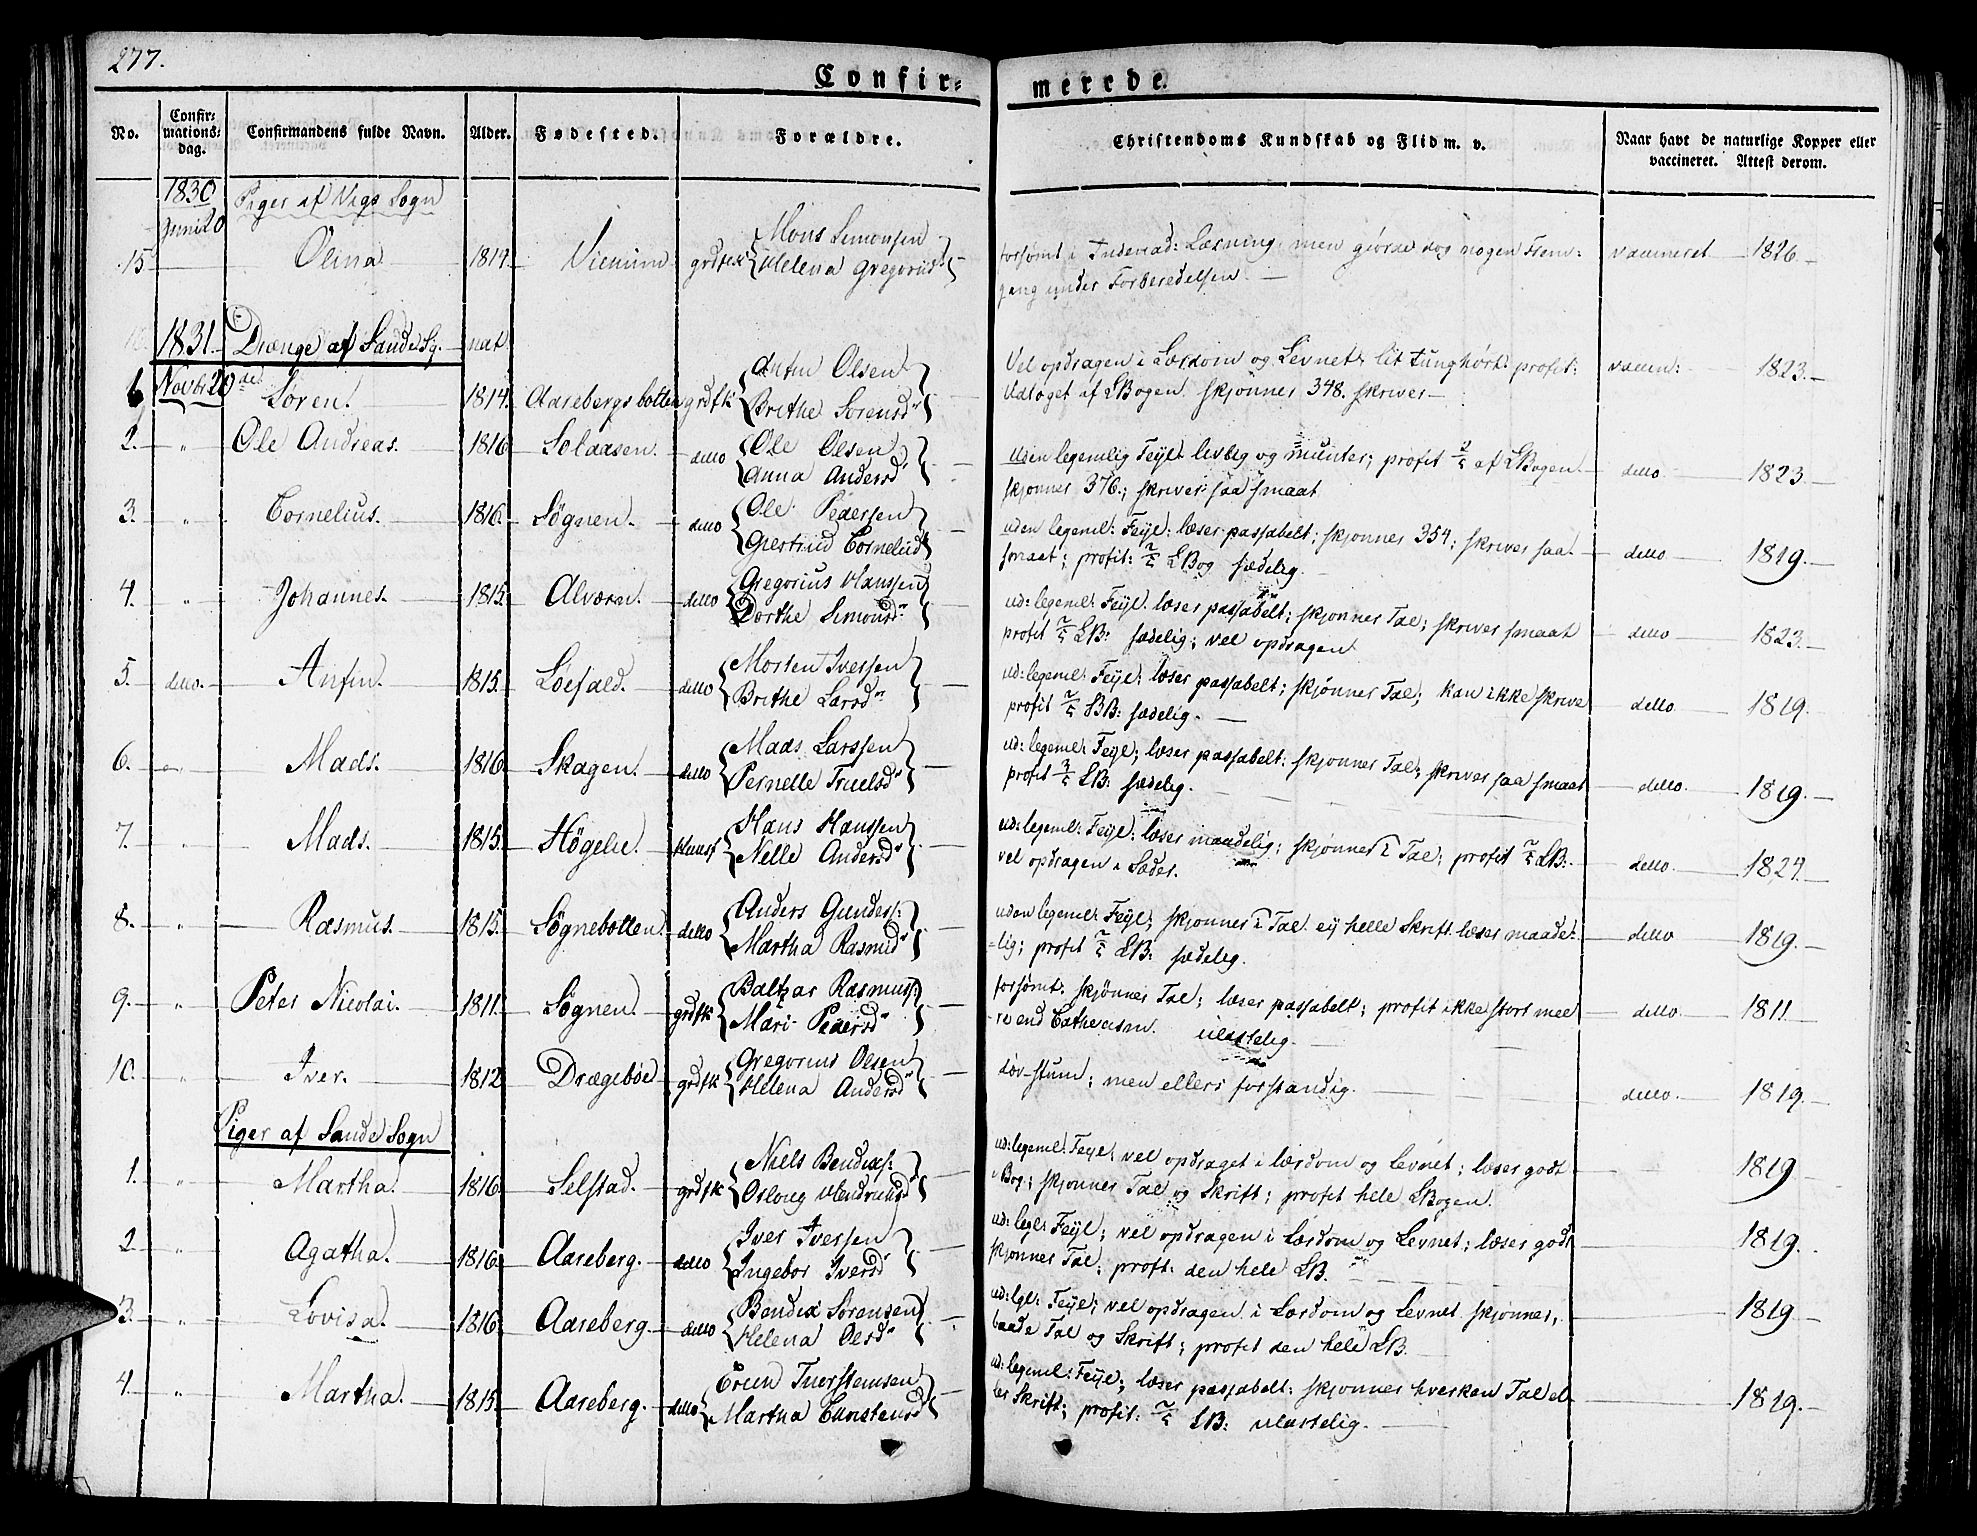 277.
Confir= merrede.
No. Confir=mations=dag. Confirmandens fulde Navn. Alder. Fødested. Forældre. Christendoms Kundskab og Flid m. v. Naar havt de naturlige Kopper eller vaccineret. Attest derom.
1830 Piger af Vigs Sogn
Juni 20
15 Olina 1814 grdfk Mons Simonsen
Helena Gregoriid
forsømt i Læsning, men giorde dog nogen Frem=
gang under Forberedelsen. 1826.
1831. Drænge af Sande Sg. nat.
Novbr 20de
1 Søren. 1814. Aarebergsbotten grdfk Anfin Olsen
Brithe Sorensd
Vel opdragen i Lærdom og Levnet, lit tunghørt. profit:
Udtoget af LBogen. skjønner 348. skriver vaccin: 1823.
2. " Ole Andreas. 1816 Solaasen. detto Ole Olsen
Anna Andersd
uden legemlig Feyl. livlig og munter; profit 2/5 af LBogen.
skjønner 376.; skriver saa smaat detto 1823
3. " Cornelius. 1816. Søgnen. detto Ole Pedersen
Giertrud Cornelud
uden legeml: Feyl: læser passabelt; skjønner 354; skriver saa
smaat; profit: LBog sædelig detto 1819.
4. " Johannes. 1815. Alværn. detto Gregorius Hanssen
Dorthe Simonsd
ud: legeml: Feyl. læser passabelt; skjønner Tal; skriver smaat
profit LB: sædelig; vel opdragen detto 1823.
5. detto. Anfin. 1815. Løefald. detto Morten Iversen
Brithe Larsd
ud: legeml: Feyl; læser passabelt; skjønner Tal; kan ikke skrive
profit LB: sædelig. detto 1819.
6. Mads. 1816. Skagen. detto Mads Larssen
Pernelle Truelsd
ud: legeml: Feyl; læser passabelt: skjønner Tal; skriver saa smaat
profit 3/5 LB: sædelig. detto. 1819.
7. " Mads. 1815. Høgelie. Huusf Hans Hanssen
Nelle Andersd
ud: legeml: Feyl: læser maadelig; skjønner Tal; profit LB:
vel opdragen i Sæder. detto. 1824.
8. " Rasmus. 1815. Søgnebotten. detto Anders Gunders:
Martha Rasmusd
uden legeml: Feyl; skjønner Tal ey helle Skrift. læser maade=
=lig; profit LB: sædelig. detto 1819.
9. " Peter Nicolai. 1811. Søgnen. grdfk Baltzar Rasmuss:
Mari Pedersd
forsømt: skjønner Tal; læser passabelt; profit ikke stort mee
re end Cathecism. ulastelig. detto. 1811.
10. " Iver. 1812 Drægebøe grdfk Gregorius Olsen
Helena Andersd
døv-stum; men ellers forstandig. detto. 1819.
Piger af Sande Sogn
1. " Martha. 1816. Selstad. grdfk Niels Bendixs:
Osloug Hendriksd
ud: legeml: Feyl: vel opdraget i lærdom og Levnet; læser godt
i Bog; skjønner Tal og Skrift; profit hele LBogen. 1819.
2 " Agatha. 1816. Aareberg. detto Iver Iversen
Ingebor Iversd
ud: legl: Feyl; vel opdragen i Lærdom og Levnet; læser godt
skjønner Tal; profit: den hele LB. 1819.
3. " Lovisa. 1816. Aareberg detto Bendix Sørensen
Helena Olsd
ud: lgl: Feyl; vel opdragen i Lærdom og Levnet skjønner,
baade Tal og Skrift; profit den hele LB. 1819.
4. " Martha. 1815. Aareberg. detto
Martha Christensd
ud: legeml: Feyl; læser passabelt: skjønner hverken Tal el
ler Skrift; profit: LB: ulastelig. 1819.